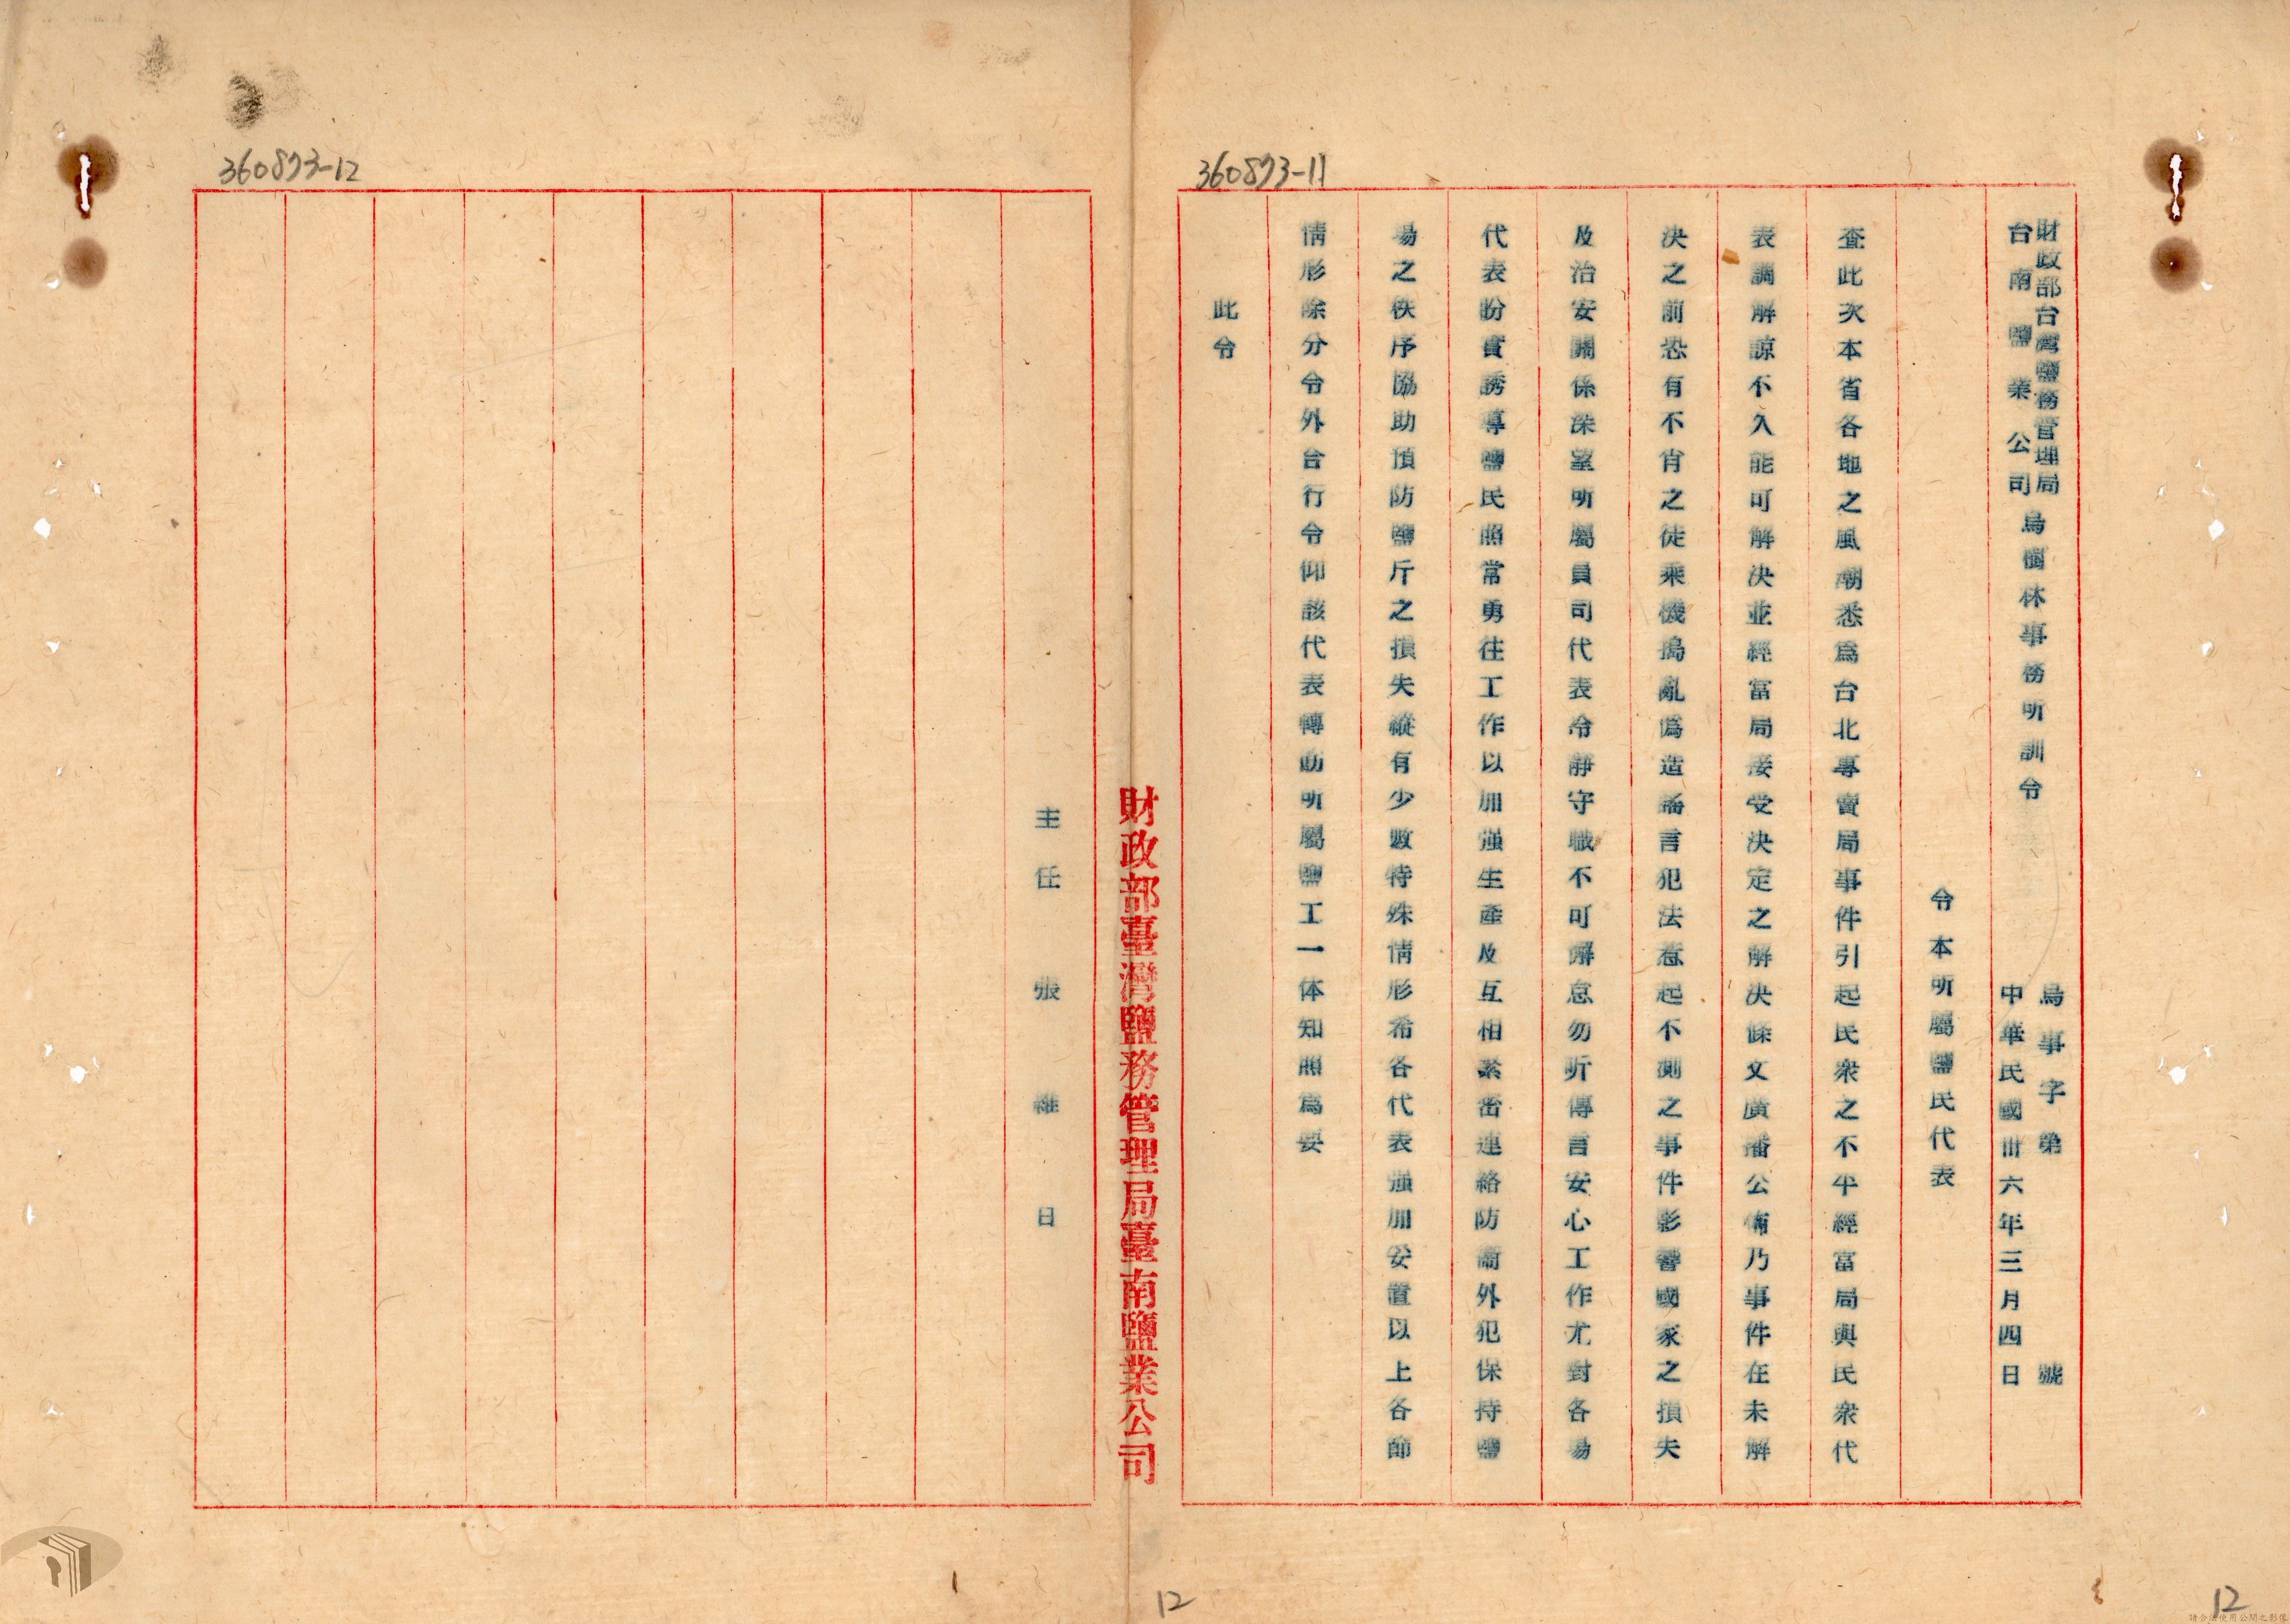 360873-11
財政部台灣鹽務管理局
台南鹽業公司
烏樹林事務所訓令
烏事字第 號
中華民國卅六年三月四日
令本所屬鹽民代表
查此次本省各地之風潮悉為台北專賣局事件引起民衆之不平經當局與民衆代
表調解諒不久能可解決並經當局接受決定之解決條文廣播公佈乃事件在未解
決之前恐有不肖之徒乘機搗亂偽造謠言犯法惹起不測之事件影響國家之損失
及治安關係深望所屬員司代表冷靜守職不可懈怠勿听傳言安心工作尤對各場
代表盼實誘導鹽民照常勇往工作以加强生產及互相緊密連絡防衛外犯保持鹽
場之秩序協助預防鹽斤之損失縱有少數特殊情形希各代表强加安置以上各節
情形除分令外合行令仰該代表轉飭所屬鹽工一体知照為要
此令
財政部臺灣鹽務管理局臺南鹽業公司
360873-12
主任 張維日
12
12
請合法使用公開之影像